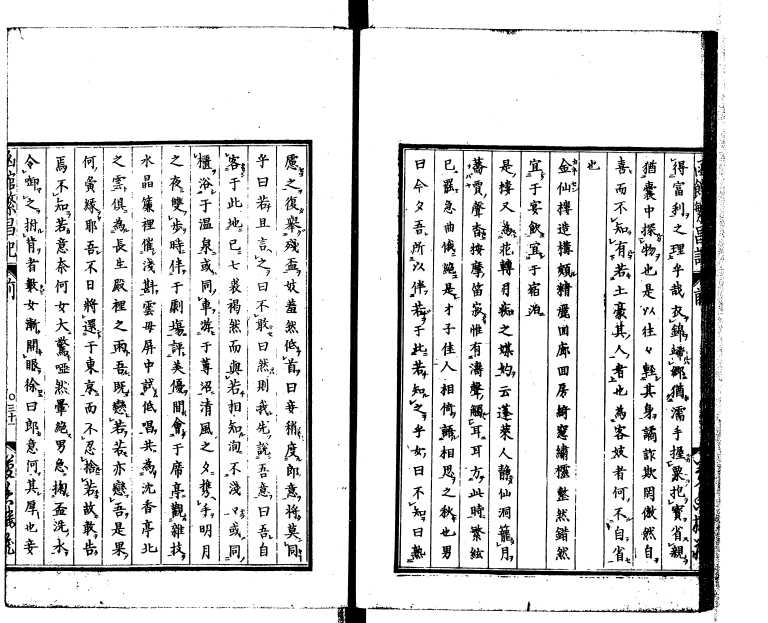 得富利之理乎哉衣錦歸鄉猶濡手握粟抱寶省親
猶囊中探物也是以往々輕其身譎詐欺罔傲然自
喜而不知有若土豪其人者也為客妓者何不自省
也
金仙樓造構頗精麗回廊回房綺窓繡櫳整然錯然
宜于宴飲宜于宿泊
是樓又為花轉月痴之媒妁云蓬萊人靜仙洞籠月
蕎賈聲杳按摩笛寂惟有濤聲觸耳耳方此時繁絃
已罷急曲俄絕是才子佳人相倚語相思之秋也男
曰今夕吾所以伴若于此若知之乎女曰不知曰熟
慮之復擧殘盃妓羞然低首曰妾稍度郎意將莫同
乎曰若且言之曰不敢曰然則我先說吾意曰吾自
客于此地已七裘褐然而與若相知洵不淺口或同
櫃浴于溫泉或同車游于蓴沼清風之夕攜手明月
之夜雙步時伴于劇場評美優間會于席亭觀雜技
水晶簾裡催淺斟雲母屏中試低唱共為沈香亭北
之雲俱為長生殿裡之雨吾既戀若若亦戀吾是果
何夤緣耶吾不日將還于東京而不忍捨若故敢告
焉不知若意奈何女大驚啞然暈絕男急掬盃洗水
令啣之拊背者數女漸開眼徐曰郎意何其厚也妾
函館繁昌記 前 〇三十一